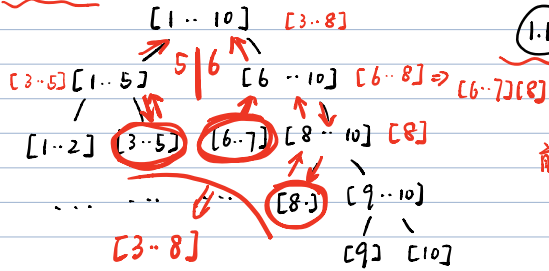 [1·· 10] [3··8]
[3··5] [1·· 5] 5|6 [6 ··10] [6··8] ⇒ [6··7][8]
[1··2] [3··5] [6··7] [8·· 10] [8]
... ... ·· [8·] [9··10]
[3··8] [9] [10]